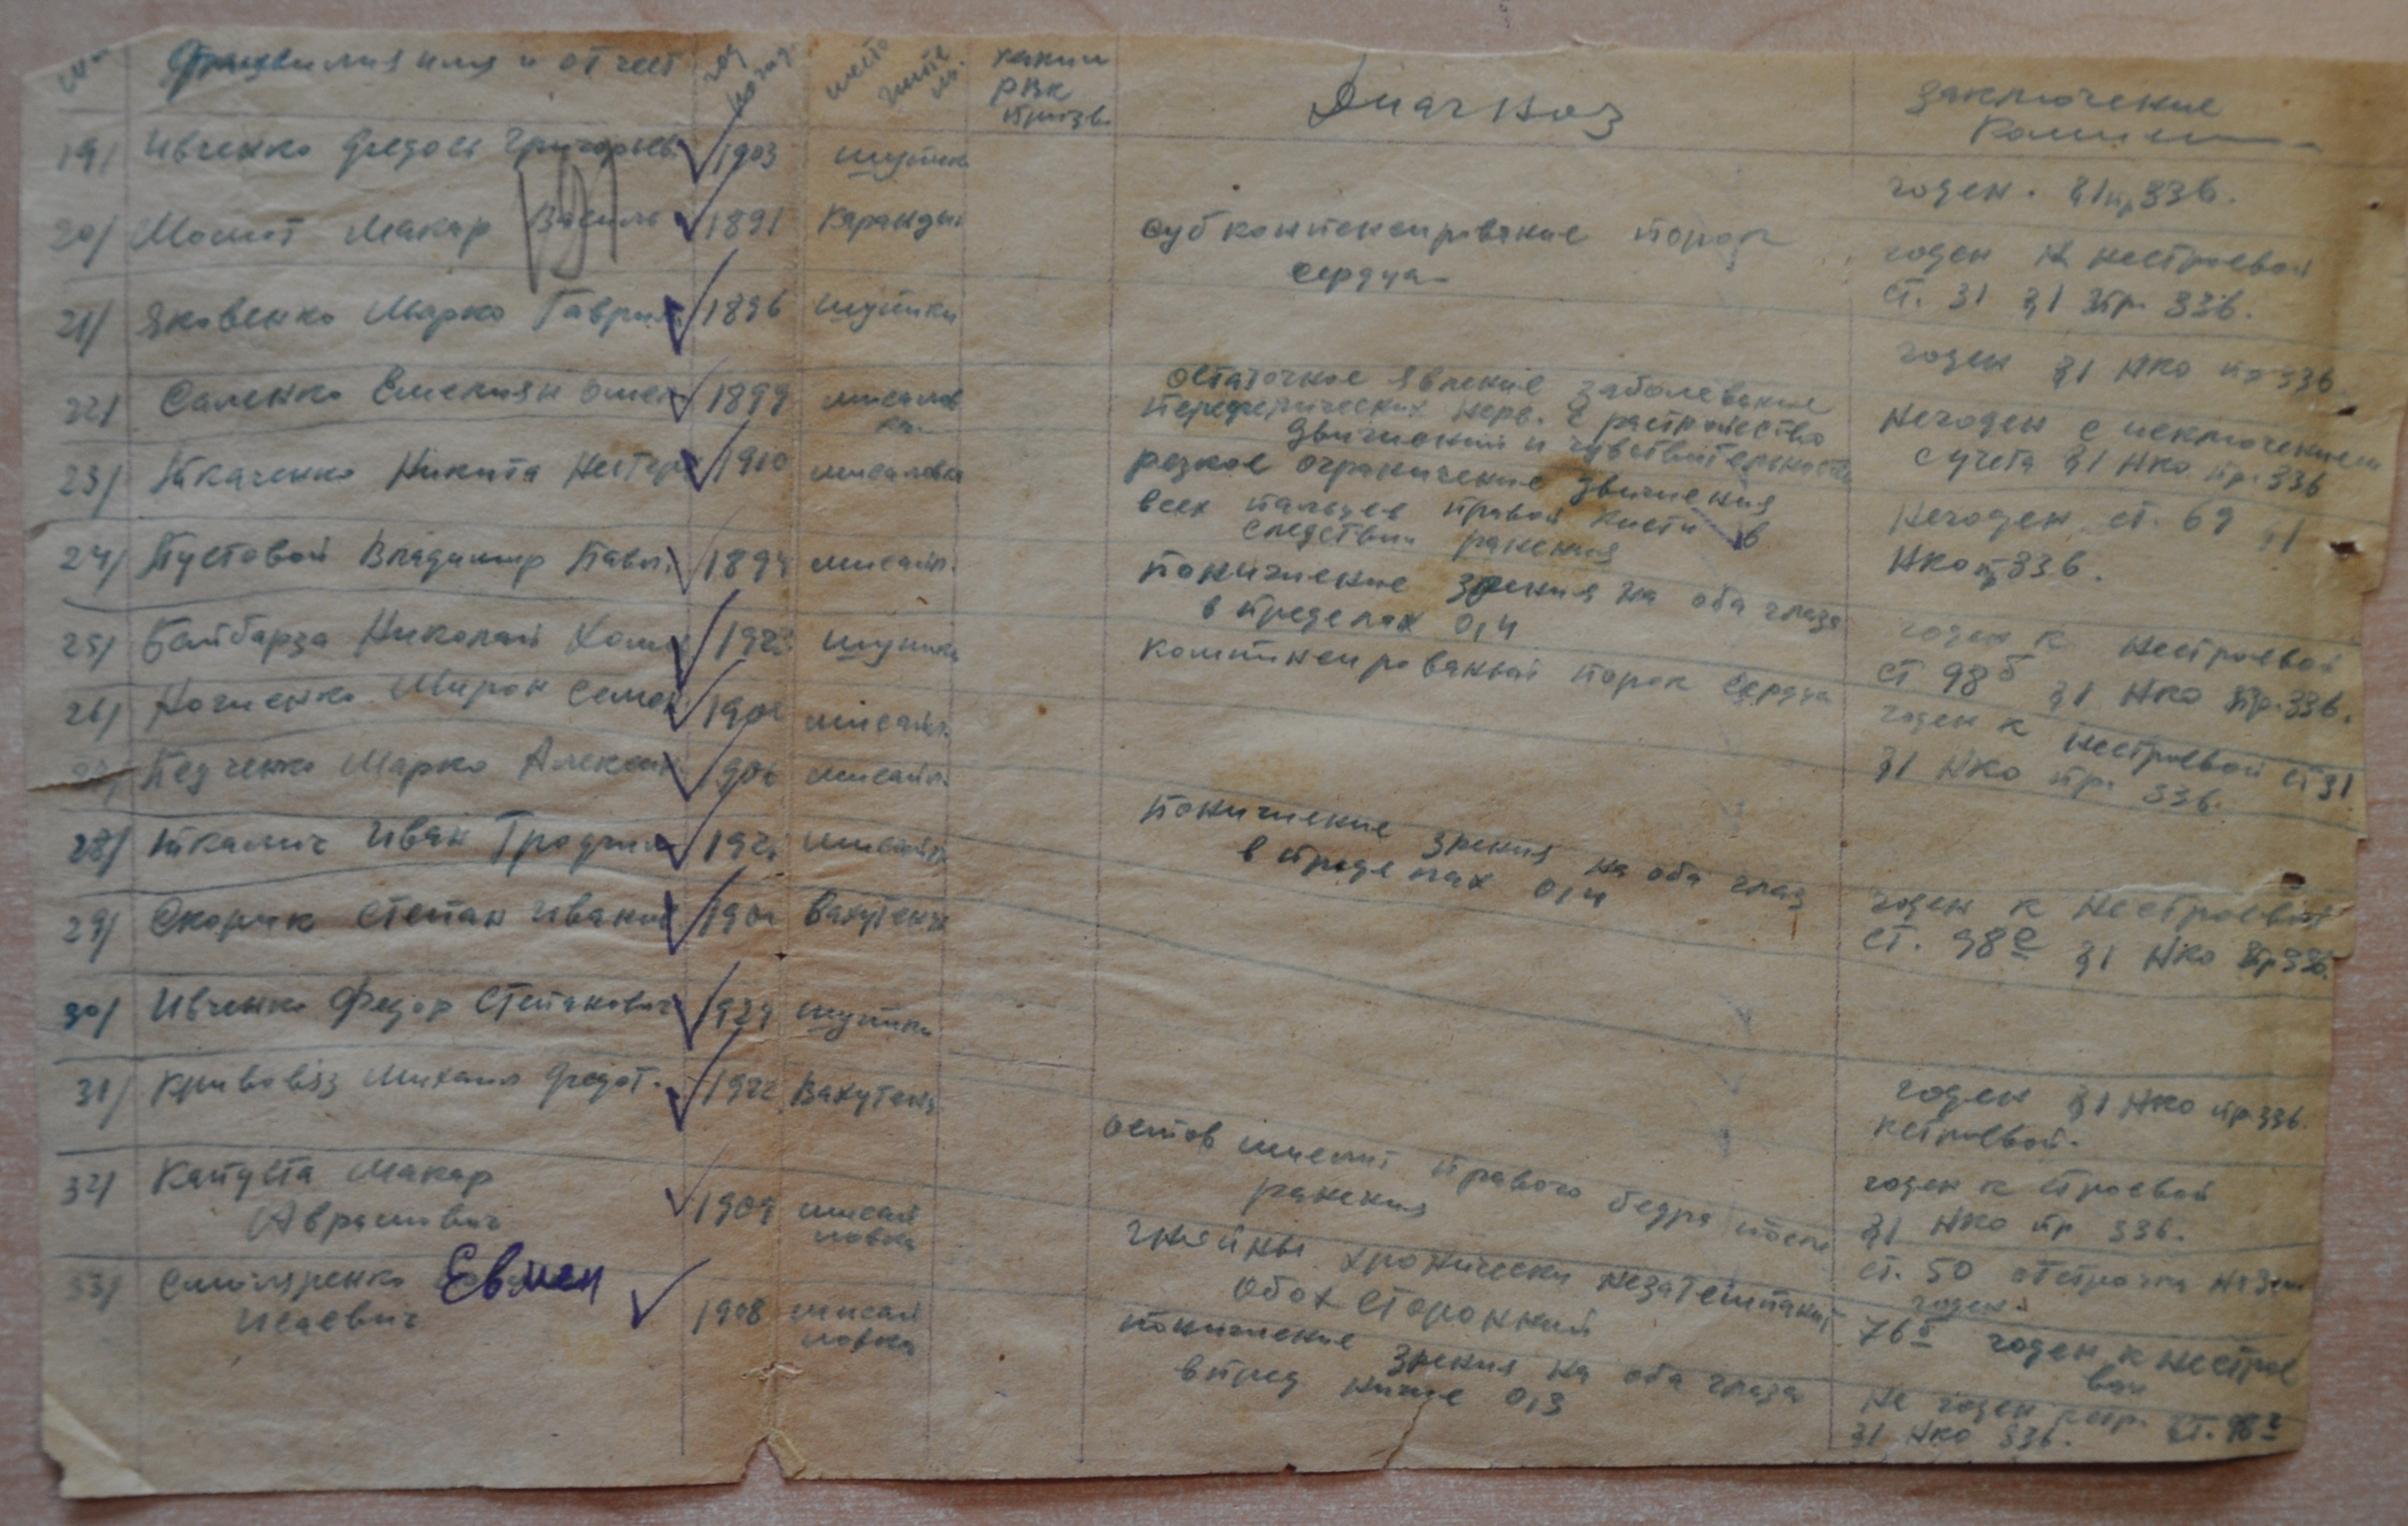 Фамилия имя и отчест
год
место
жите
каким
РВК
призв.
Диагноз
Заключение
19/ Ивченко Федось Григорьев. 1903 Шупики
годен. гр 336.
20/ Момот Макар Василь 1891 Карандын
субкомпенсированые порок
сердца
годен к нестроевой
ст. 31 гр. 336.
21/ Яковенко Марко Гаврил 1896 Шупики
годен НКО пр 336
22/ Саленко Емельян Омел 1899
остаточное явление заболевание
периферических нерв. с растройство
движений и чувствительности
Негоден с исключением
с учета НКО пр. 336
23/ Ткаченко Никита Нестер 1910 мисаловка
резкое ограничение движения
всех пальцев правой кисти в
следствии ранения
Негоден ст. 69
НКО пр 336.
24/ Пустовой Владимир Павл. 1894 мисайл.
понижение зрения на оба глаза
в пределах 0,4
годен к нестроевой
ст 98 б НКО пр. 336.
25/ Байбарза Николай Хом 192 Шупики
компенсированый порок сердца
годен к нестроевой ст 31
НКО пр. 336.
26/ Ногиенко Мирон Семен 190 мисайл.
Педченко Марко Алексан 906 мисайл.
28/ Ткалич Иван Трофим 192 мисайл
понижение зрения на оба глаз
в пределах 0,4
годен к нестроевой
ст. 98 НКО пр 336.
29/ Скорик Степан Иванов 190 Вахутенц
30/ Ивченко Федор Степанович 1929 Шупики
31/ Кривовяз Михаил Федот. 1922 Вахутенц
годен НКО пр 336.
кстроевой.
32/ Капуста Макар
Аврамович 1909 мисай
ловка
годен к строевой
НКО пр 336.
правого бедра после
ранения
ст. 50 отстрочка на
33/ Смоляренко Евмен
Исаевич 1908 мисай
ловка
гнойны хронически
обох сторонний
76 б годен к нестрое
вой
понижение зрения на оба глаза
в пред ниже 0,3
Не годен ст. 98
НКО 336.